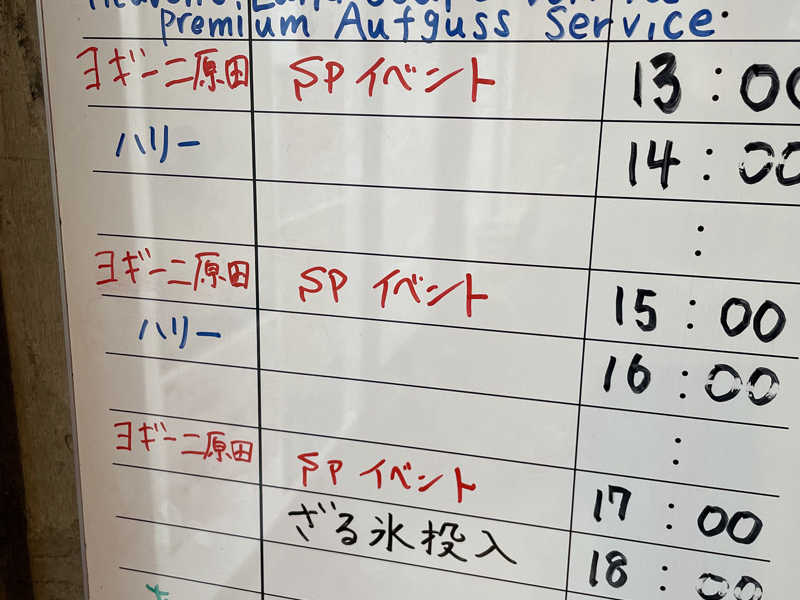 Premium Aufguss Service
ヨギーニ原田 SPイベント 13:00
ハリー 14:00
:
ヨギーニ原田 SPイベント 15:00
ハリー 16:00
:
ヨギーニ原田 SPイベント 17:00
ざる氷投入 18:00